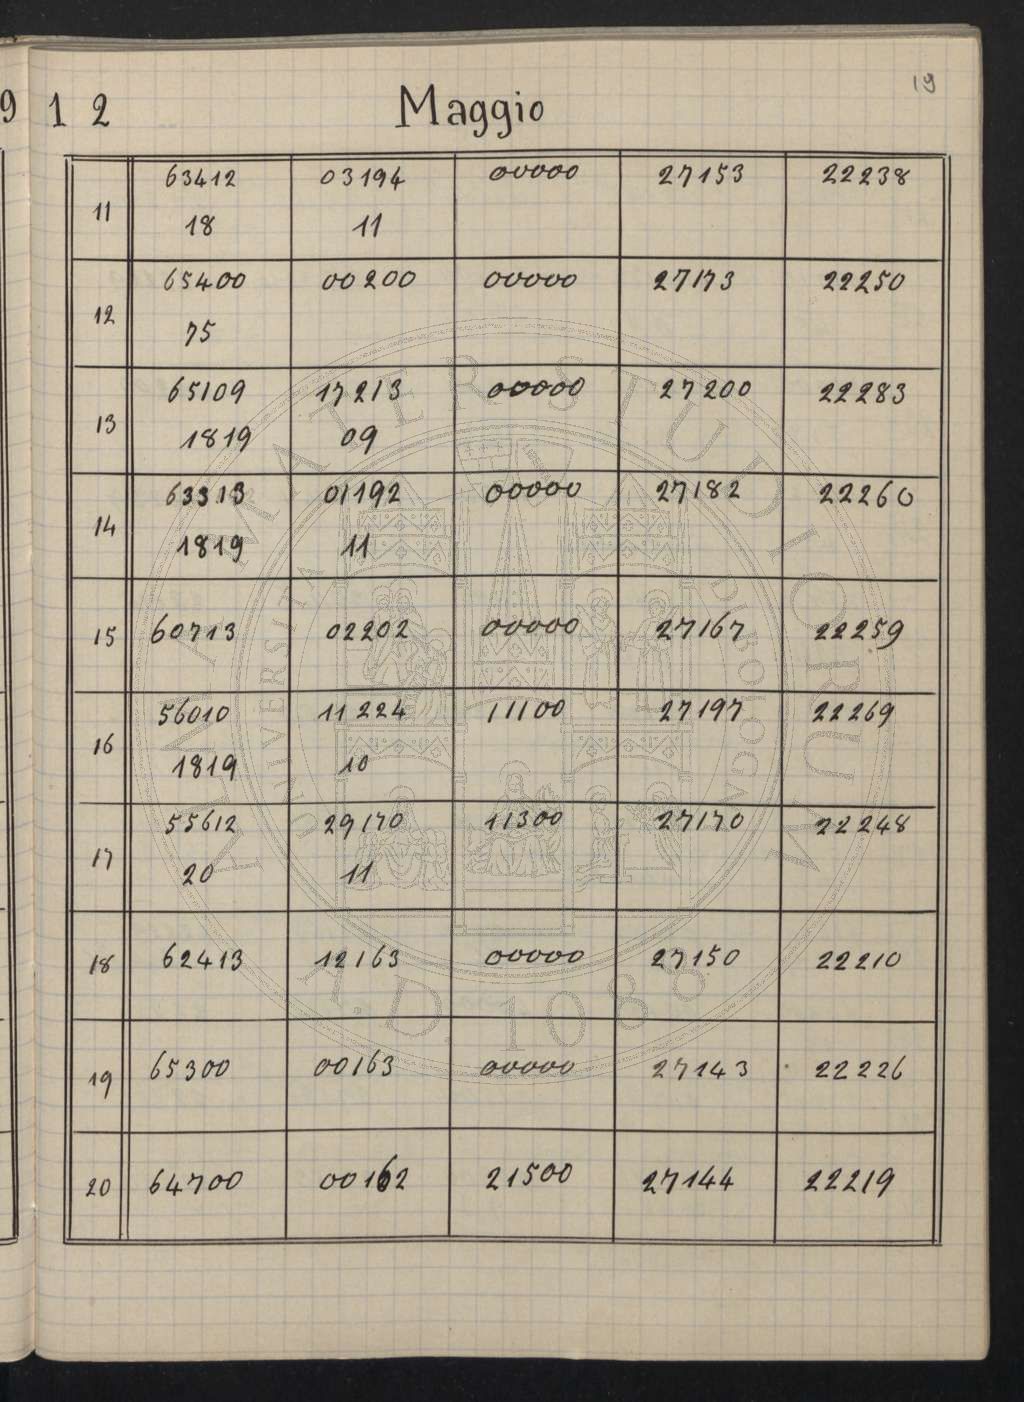 19
9 1 2 Maggio
11 63412 03194 00000 27153 22238
18 11
12 65400 00200 00000 27173 22250
75
13 65109 17213 00000 27200 22283
1819 09
14 63313 01192 00000 27182 22260
1819 11
15 60713 02202 00000 27167 22259
16 56010 11224 11100 27197 22269
1819 10
17 55612 29170 11300 27170 22248
20 11
18 62413 12163 00000 27150 22210
19 65300 00163 00000 27143 22226
20 64700 00162 21500 27144 22219
ALMA MATER STUDIORUM
UNIVERSITA DI BOLOGNA
A.D. 1088